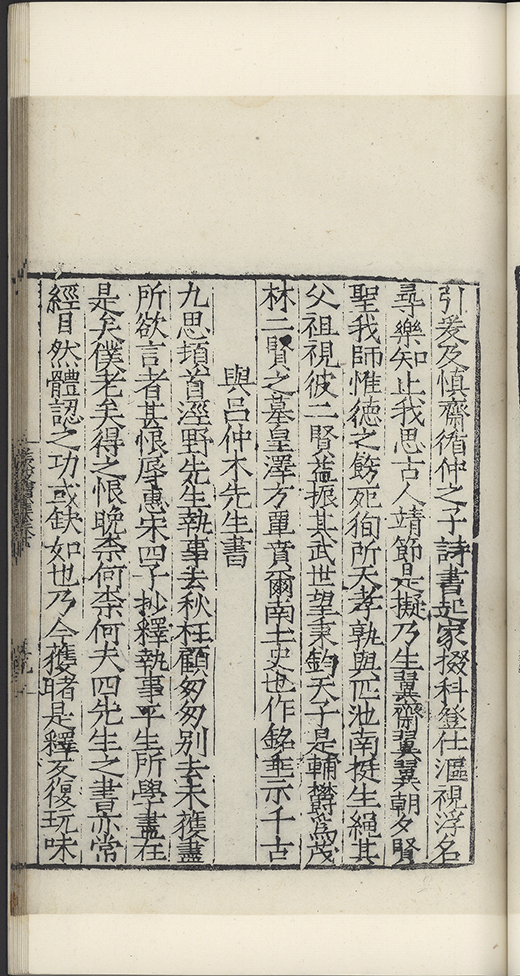 引爰及慎齋循仲之子詩書起家掇科登仕漚視浮名
尋樂知止我思古人靖節是擬乃生翼齋翼翼朝夕賢
聖我師惟德之飭死徇所天孝孰與匹池南挺生繩其
父祖視彼二賢益振其武世望秉鈞天子是輔欝爲茂
林二賢之墓皇澤方單賁爾南土史也作銘埀示千古
與呂仲木先生書
九思頓首涇野先生執事去秋枉顧匆匆别去未獲盡
所欲言者甚恨辱惠宋四子抄釋執事平生所學盡在
是矣僕老矣得之恨晚柰何柰何夫四先生之書亦常
經目然體認之功或缺如也乃今獲睹是釋反復玩味